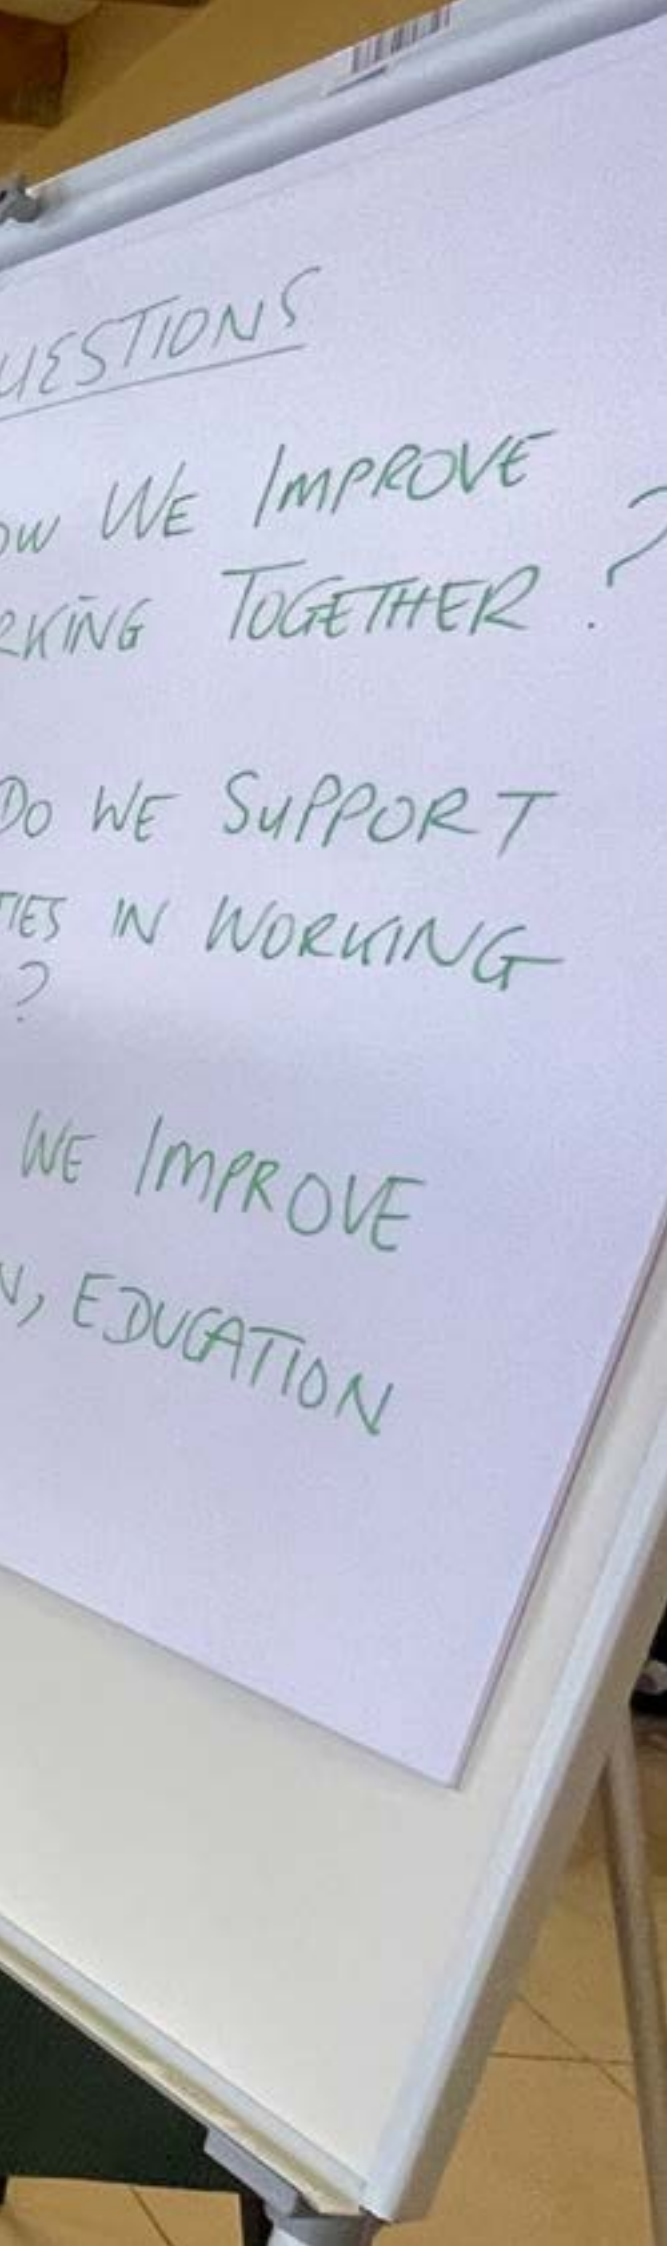 UESTIONS
OW WE IMPROVE
RKING TOGETHER ?
DO WE SUPPORT
TIES IN WORKING
?
WE IMPROVE
N, EDUCATION